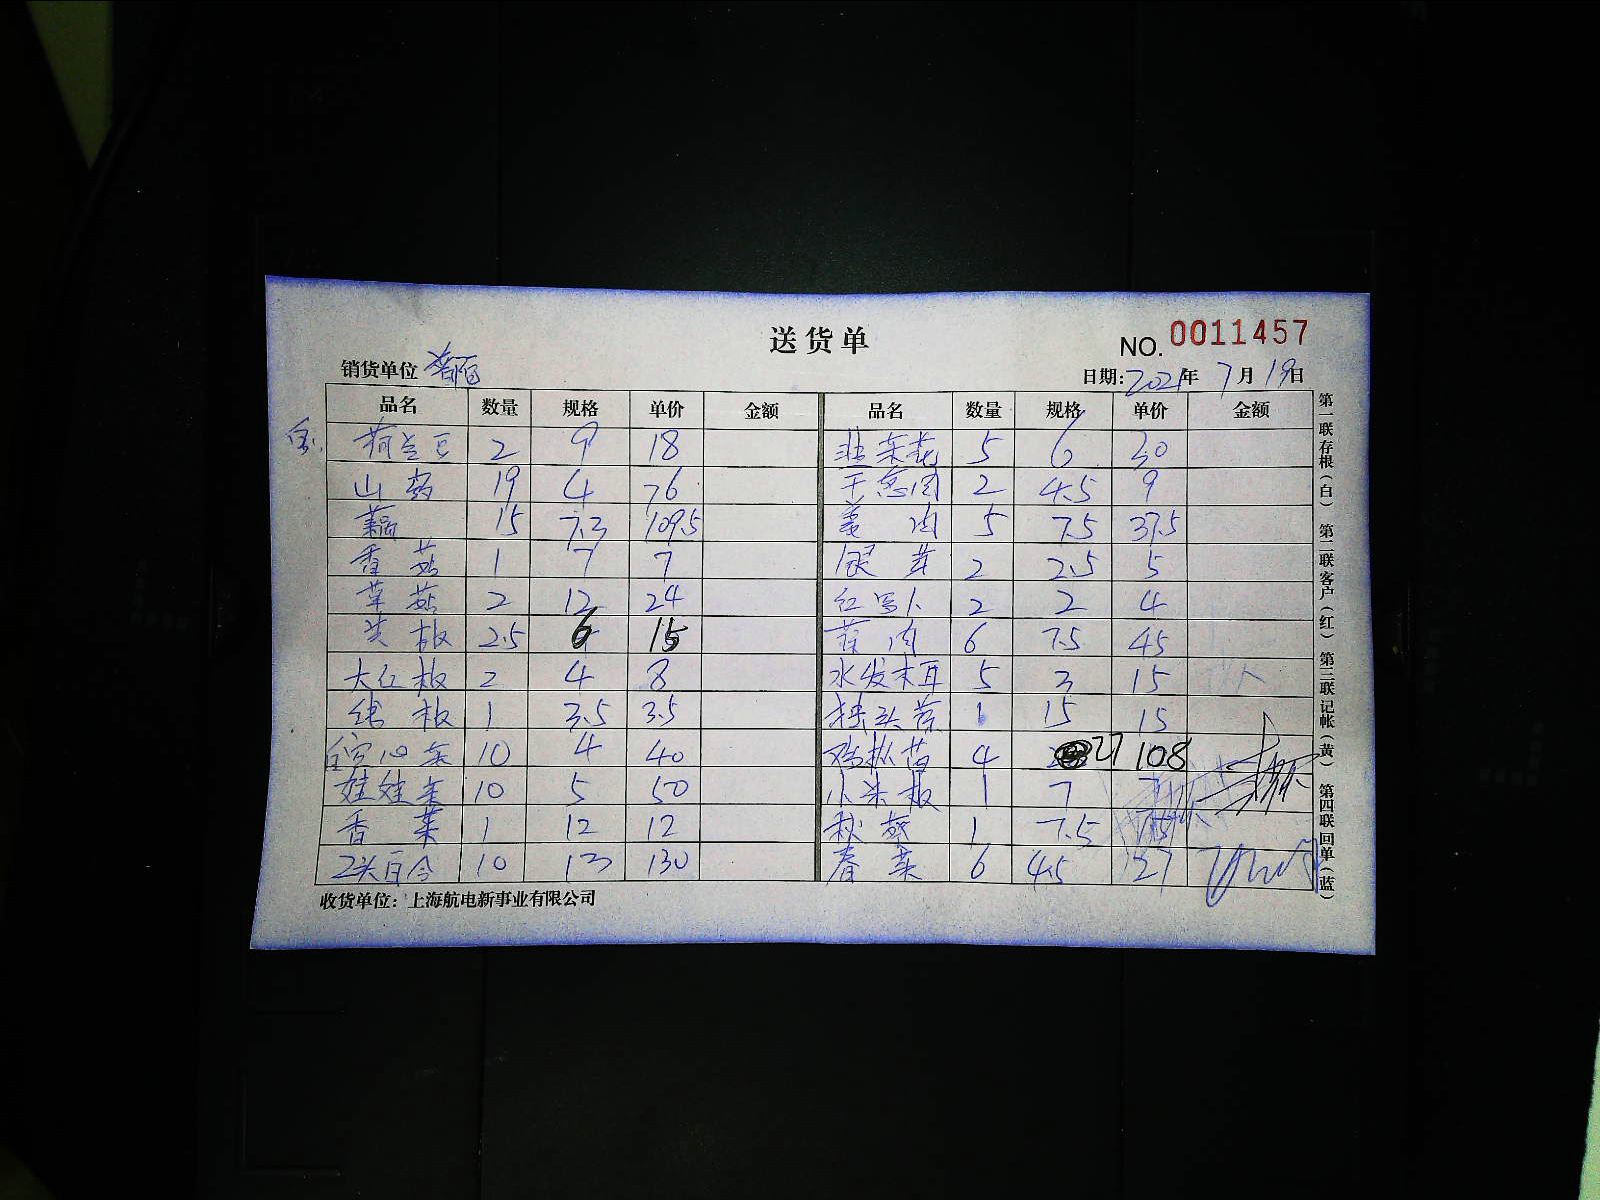 送货单
NO. 0011457
销货单位
日期: 2021年 7月 19日
品名 数量 规格 单价 金额 品名 数量 规格 单价 金额
荷兰豆 2 9 18 韭菜花 5 6 30
山药 19 4 76 干葱肉 2 4.5 9
藕 15 7.3 109.5 姜肉 5 7.5 37.5
香菇 1 7 7 银芽 2 2.5 5
草菇 2 12 24 红 2 2 4
尖椒 2.5 6 15 蒜肉 6 7.5 45
大红椒 2 4 8 水发木耳 5 3 15
绿椒 1 3.5 3.5 独头蒜 1 15 15
空心菜 10 4 40 鸡枞菇 4 27 108
娃娃菜 10 5 50 小米椒 1 7 7
香菜 1 12 12 秋葵 1 7.5
2头百合 10 13 130 春菜 6 4.5 27
收货单位: 上海航电新事业有限公司
第一联存根(白) 第二联客户(红) 第三联记帐(黄) 第四联回单(蓝)